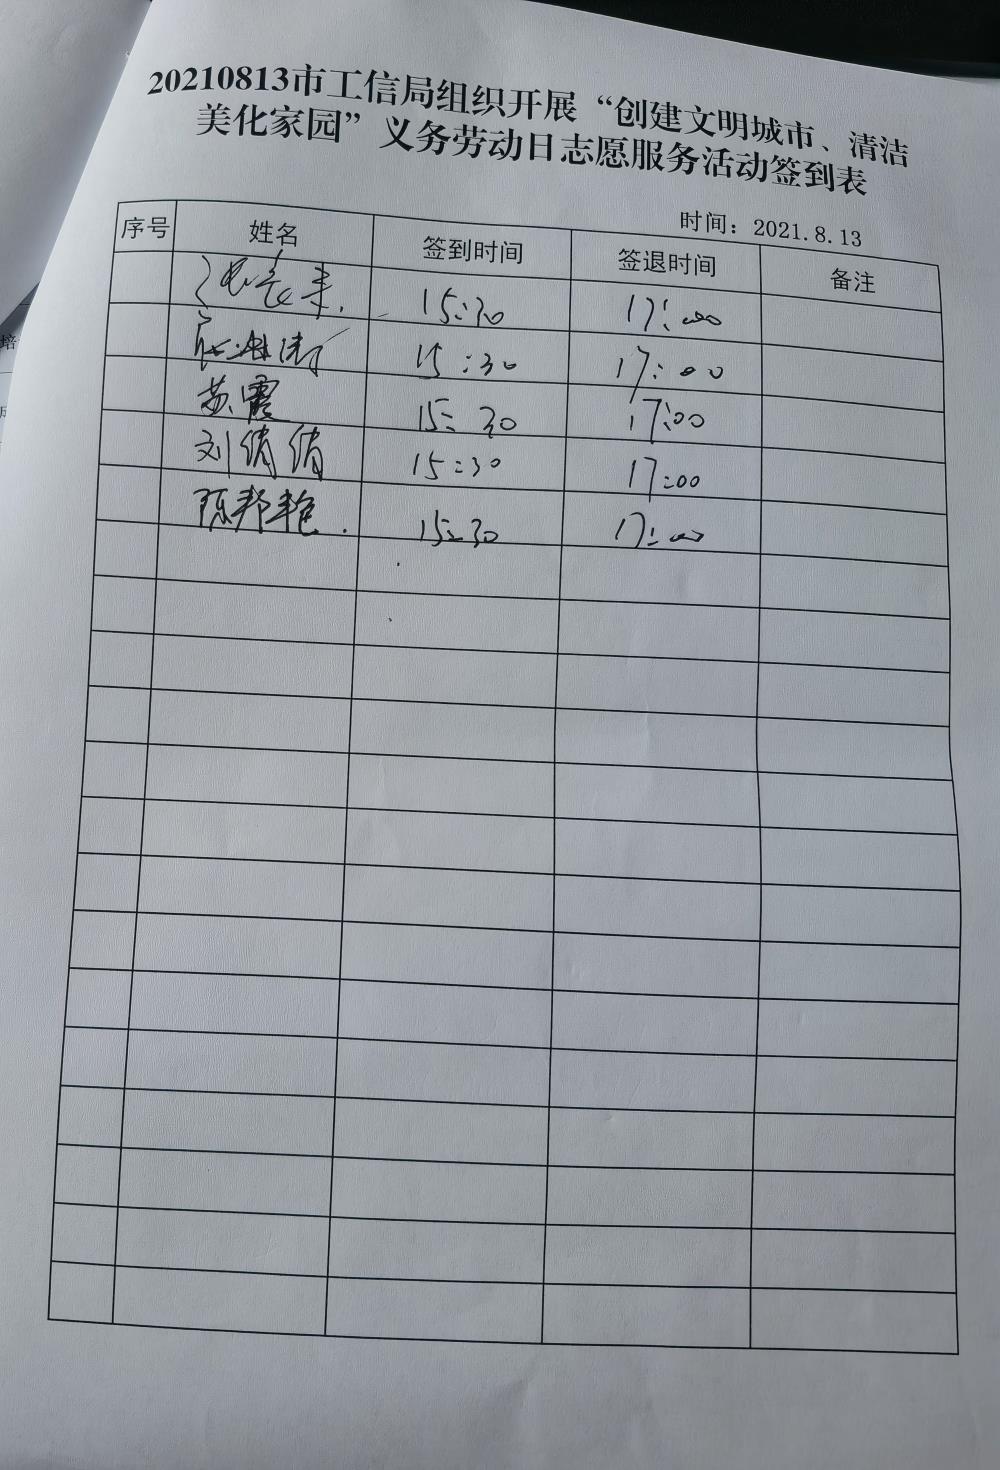 20210813市工信局组织开展“创建文明城市、清洁
美化家园”义务劳动日志愿服务活动签到表
时间：2021.8.13
序号 姓名 签到时间 签退时间 备注
15:30 17:00
15:30 17:00
苏霞 15:30 17:00
刘倩倩 15:30 17:00
陈邦艳 15:30 17:00
培